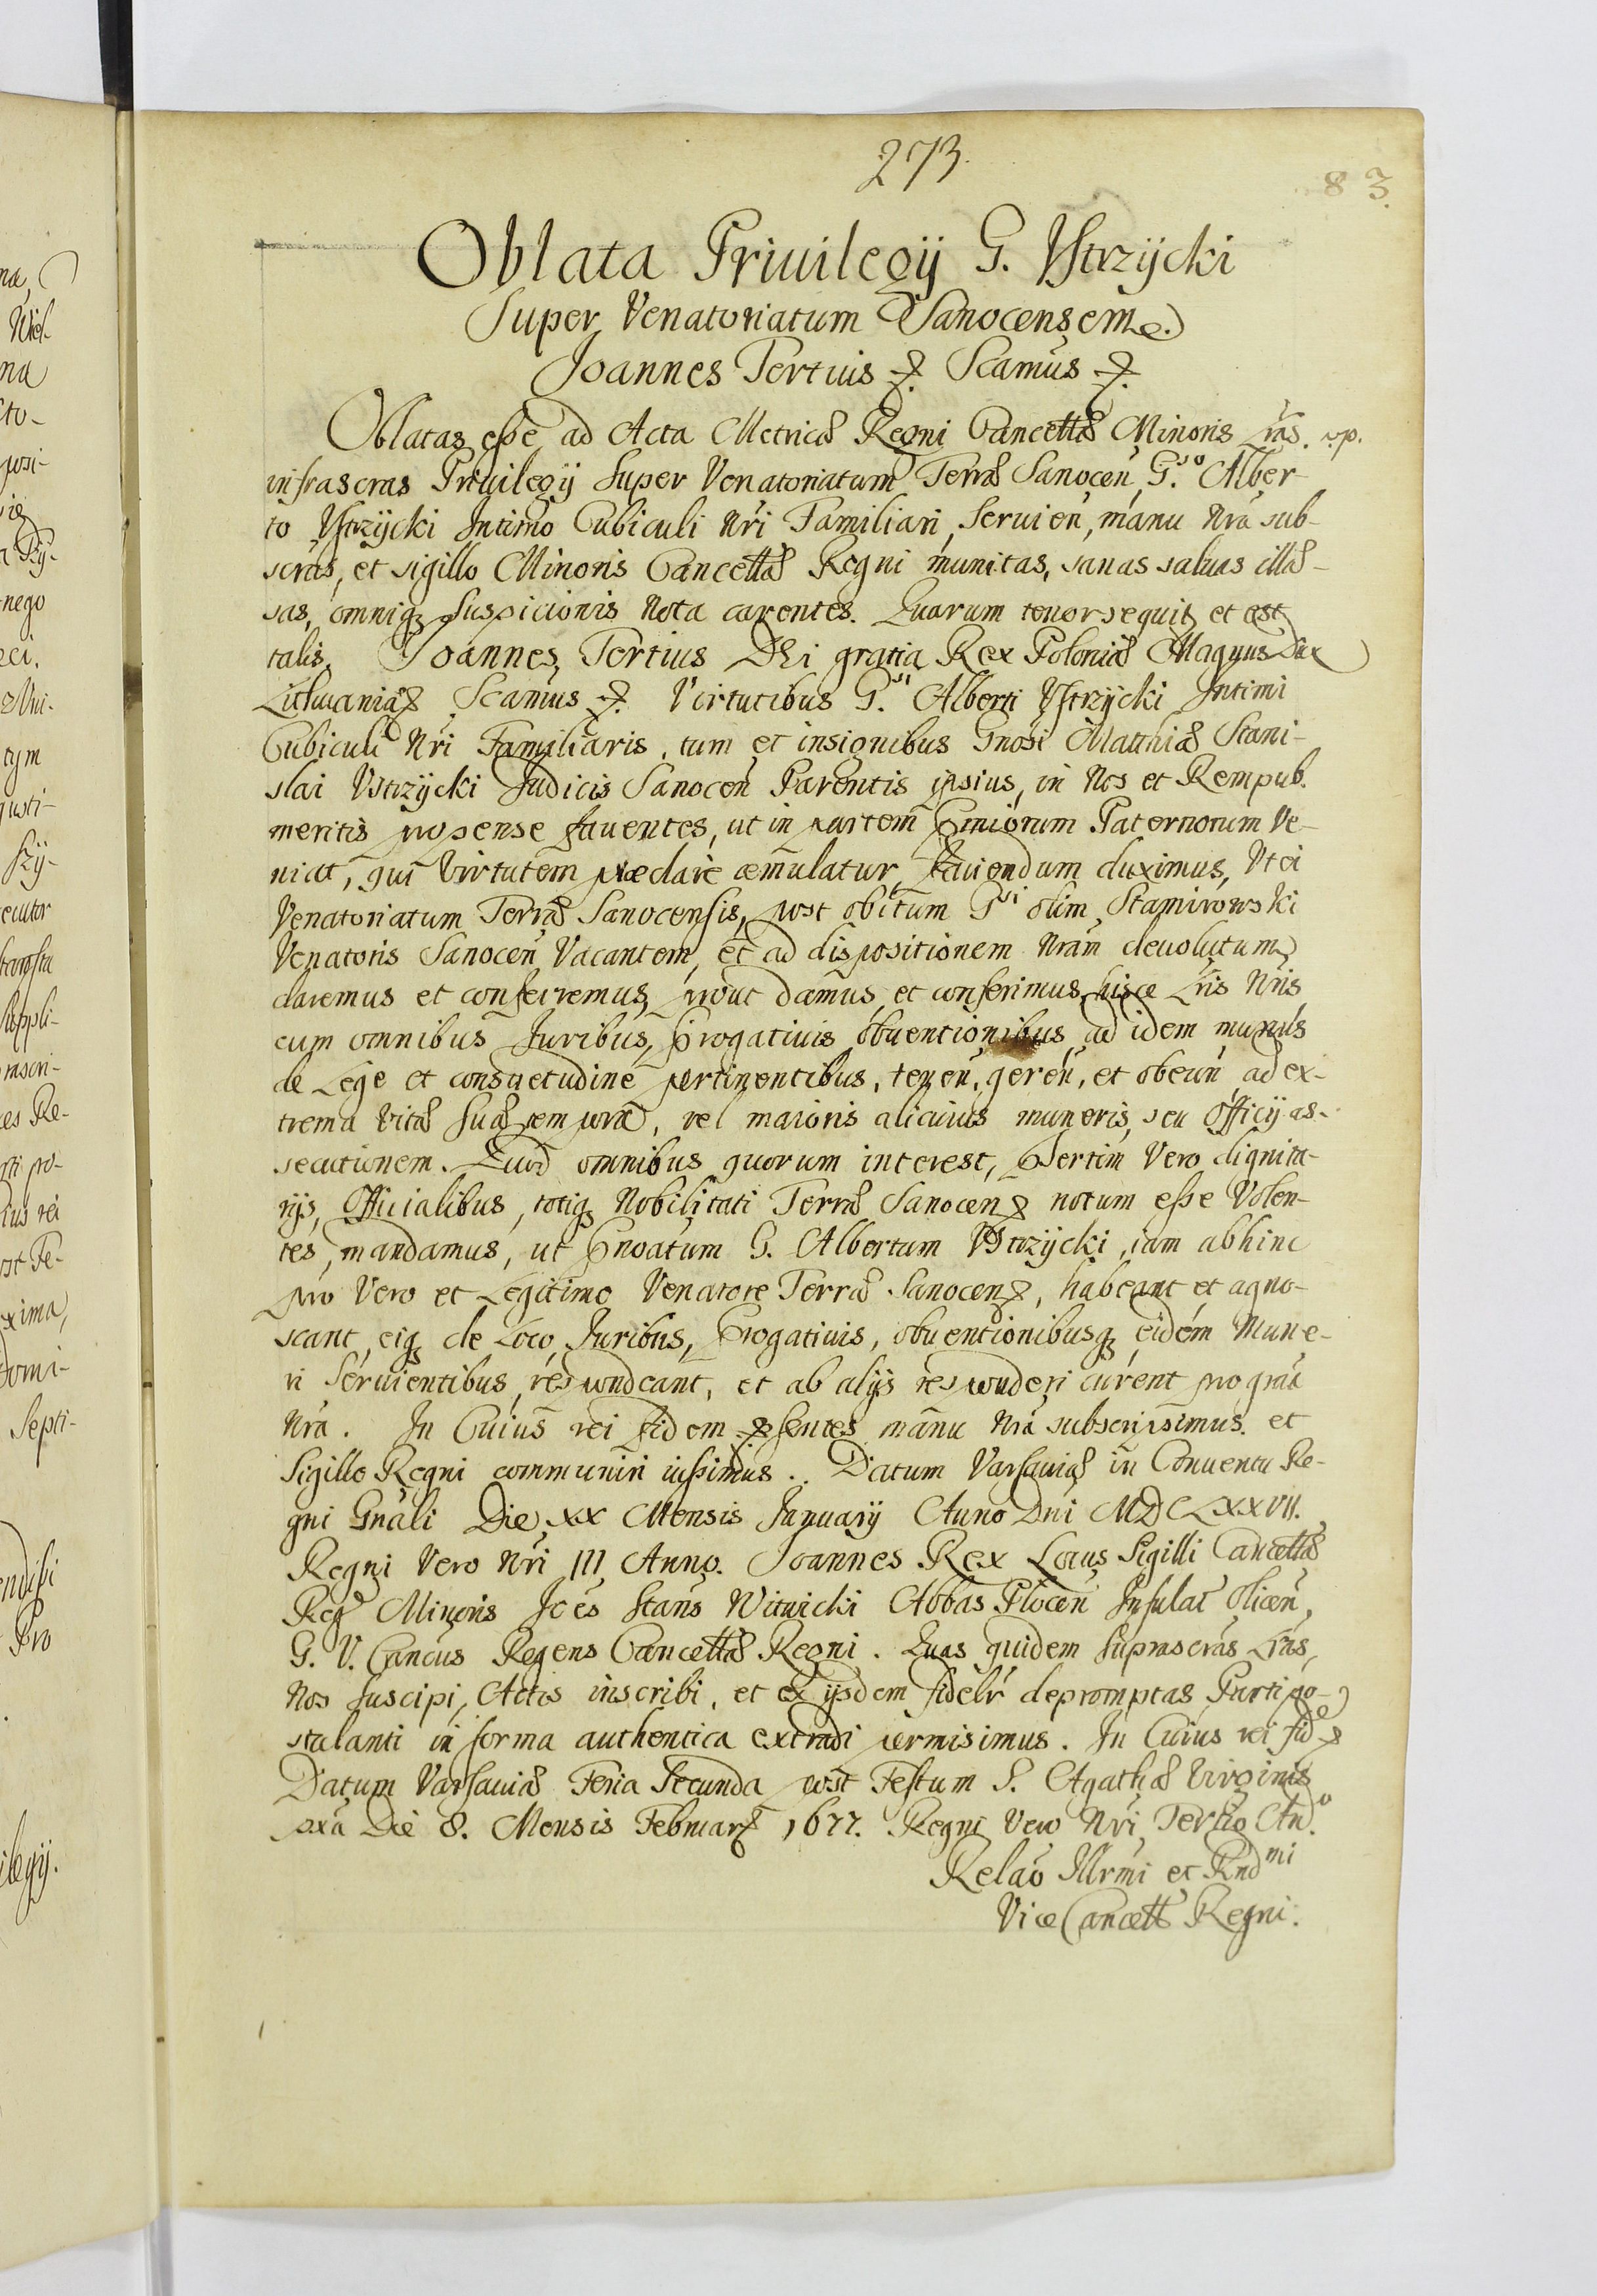 273.
83.
Oblata Priuilegij G. Vstrzÿcki
Super Venatoriatum Sanocensem.
Joannes Tertius &. Scamus &.
Oblatas esse ad Acta Metricæ Regni Cancellæ Minoris Lrãs. pp.
infrascras Priuilegij Super Venatoriatum Terræ Sanocen̄, G.so Alber-
to Vstrzÿcki Intimo Cubiculi Nri Familiari, Seruien̄, manu Nrã sub-
scras, et sigillo Minoris Cancellæ Regni munitas, sanas saluas illæ-
sas, omniq; suspicionis Nota carentes. Quarum tenor sequit, et est
talis. Joannes Tertius DEi gratia Rex Poloniæ Magnus Dux
Lithuaniæ & Scamus &. Virtutibus G.si Alberti Vstrzÿcki Intimi
Cubiculi Nri Familiaris, tum et insignibus Gnosi Matthiæ Stani-
slai Vstrzÿcki Judicis Sanocen̄ Parentis ipsius, in Nos et Rempub.
meritis propense fauentes, ut in partem Præmiorum Paternorum Ve-
niat, qui Virtutem præclare æmulatur, fauendum duximus, Vt ei
Venatoriatum Terræ Sanocensis, post obitum Gsi olim Stamirowski
Venatoris Sanocen̄ Vacantem, et ad dispositionem Nram deuolutum
daremus et conferremus, prout damus et conferimus hisce Lris Nris,
cum omnibus Juribus, Prærogatiuis obuentionibus ad idem munus
de Lege et consuetudine pertinentibus, tenen̄, geren̄, et obeun̄ ad ex-
trema Vitæ Suæ tempora, vel maioris alicuius muneris, seu Officij as-
secutionem. Quod omnibus quorum interest, Præsertim Vero dignita-
rijs, Officialibus, totiq; Nobilitati Terræ Sanocen & notum esse Volen-
tes, mandamus, ut Prænoatum G. Albertum Vstrzÿcki, iam abhinc
pro Vero et Legitimo Venatore Terræ Sanocen &, habeant et agno-
scant, eiq; de Loco, Juribus, Prærogatiuis, obuentionibusq; eidem Mune-
ri Seruientibus respondeant, et ab alijs responderi curent pro grãa
Nrã. In Cuius rei fidem Præsentes manu Nrã subscripsimus. et
Sigillo Regni communiri iussimus. Datum Varsauiæ in Conuentu Re-
gni Gnãli Die XX Mensis Januarij Anno Dni MDCLXXVII.
Regni Vero Nri III Anno. Joannes Rex Locus Sigilli Cancellæ
Regni Minoris Joes Stans Witwicki Abbas Plocen̄ Insulat̄ Olicen̄,
G. V. Cancus Regens Cancellæ Regni. Quas quidem suprascras Lrãs,
Nos suscipi, Actis inscribi, et ex ijsdem fidelr depromptas, Parti po-
stulanti in forma authentica extradi permisimus. In Cuius rei fide &
Datum Varsauiæ Feria Secunda post Festum S. Agathæ Virginis
pxã Die 8. Mensis Februarij 1677. Regni Vero Nri Tertio Ano.
Relao Illrmi et Rndmi
Vice Cancell Regni.